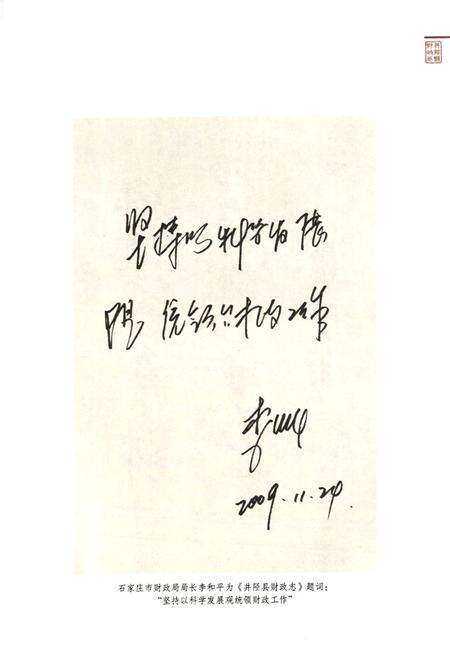 坚持以科学发展
观统领财政工作
李和平
2009.11.24.
石家庄市财政局局长李和平为《井陉县财政志》题词：
“坚持以科学发展观统领财政工作”